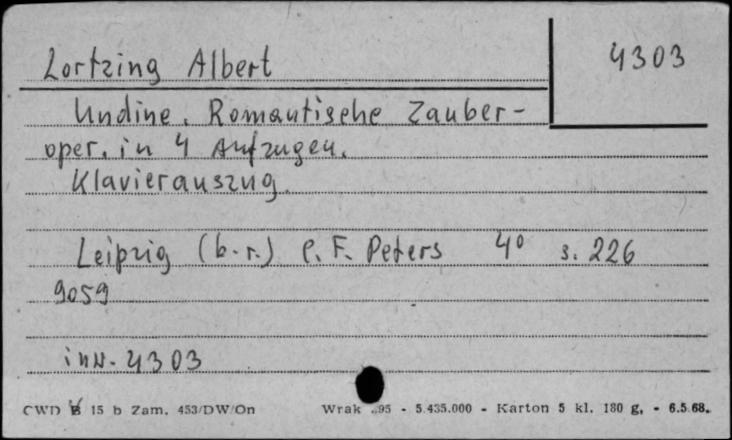 Lortzing Albert
4303
Undine. Romantische Zauber-
oper. in 4 Aufzugen.
Klavierauszug.
Leipzig (b.r.) C. F. Peters 4° s. 226
9059
inw. 4303
CWD 15 b Zam. 453/DW/On Wrak 95 - 5.435.000 - Karton 5 kl. 180 g, - 6.5.68.